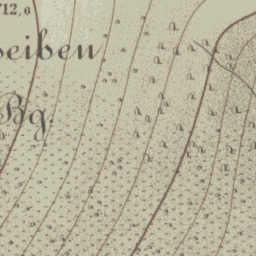 712,6
eiben
Bg.